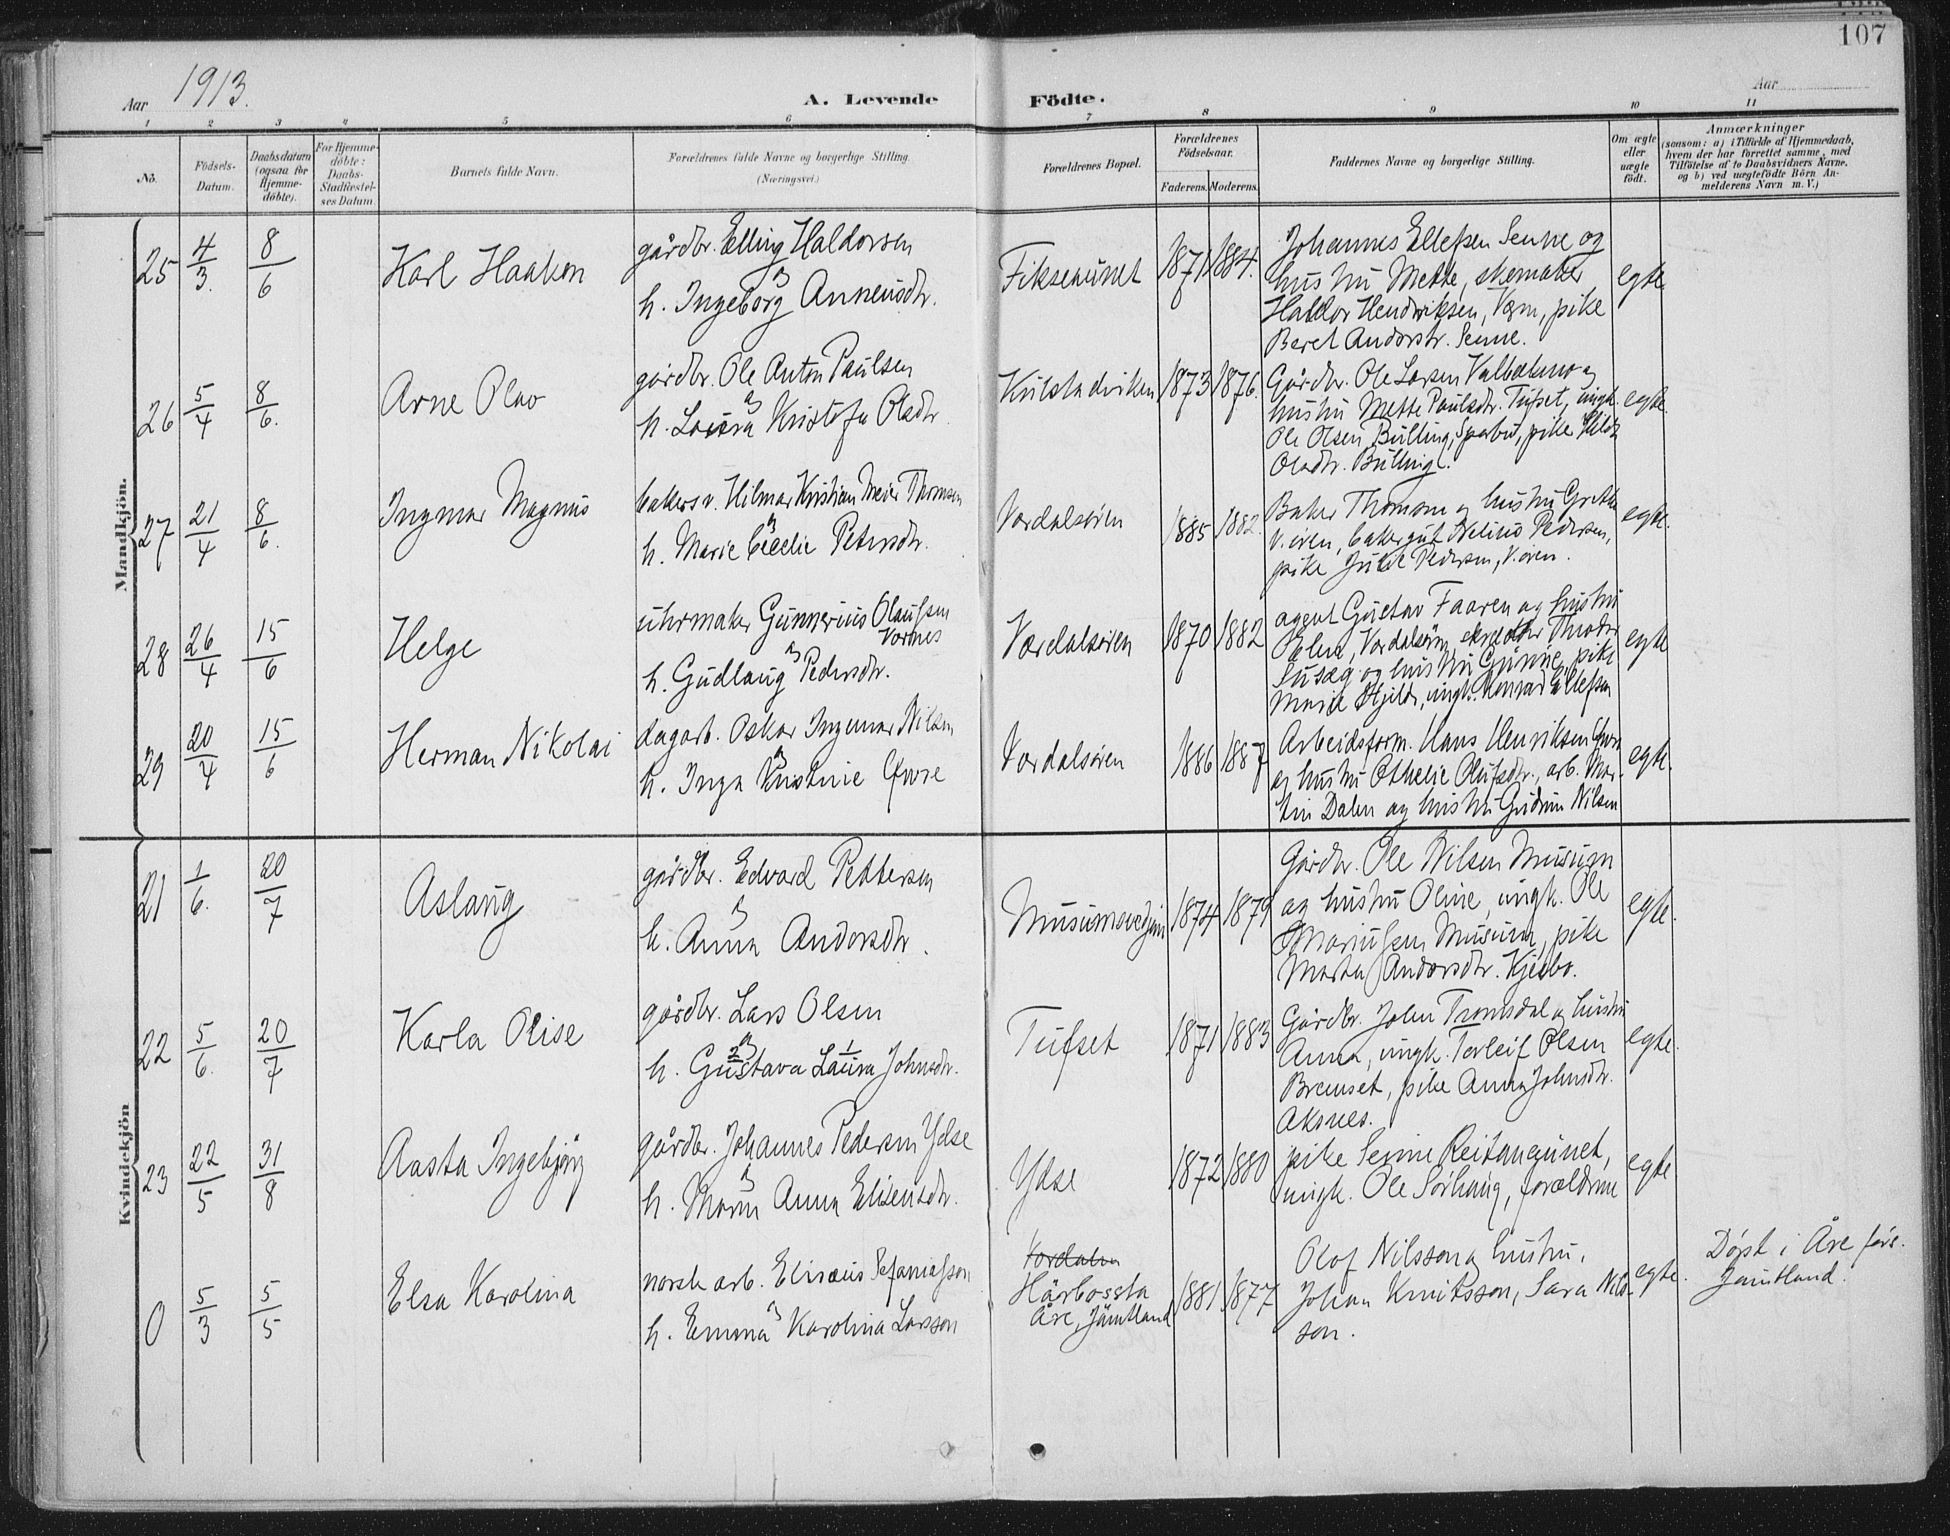 107
Aar 1913.
A. Levende Födte.
Aar
1 2 3 4 5 6 7 8 9 10 11
No.
Födsels-Datum.
Daabsdatum (ogsaa for Hjemme-döbte).
For Hjemme-döbte: Daabs-Stadfæstel-ses Datum.
Barnets fulde Navn.
Forældrenes fulde Navne og borgerlige Stilling. (Næringsvei.)
Forældrenes Bopæl.
Forældrenes Födselsaar.
Faderens. Moderens.
Faddernes Navne og borgerlige Stilling.
Om ægte eller uægte födt.
Anmærkninger
(saasom: a) i Tilfælde af Hjemmedaab,
hvem der har forrettet samme, med
Tilföielse af to Daabsvidners Navne,
og b) ved uægtefödte Börn An-
melderens Navn m. V.)
Mandkjön.
25 4/3. 8/6 Karl Haakon
gårdbr. Elling Haldorsen
og
h. Ingeborg Anneusdtr.
Fikseaunet 1871 1884.
Johannes Ellefsen Senne og
hustru Mette, skomaker
Haldor Hendriksen, Værn, pike
Beret Andorsdtr. Senne.
egte.
26 5/4 8/6. Arne Olav
gårdbr. Ole Anton Paulsen
og
h. Laura Kristofa Olsdtr.
Kulstadviken 1873 1876.
Gårdbr. Ole Larsen og
hustru Mette Paulsdtr. Tufset, ungk.
Ole Olsen Bulling, Sparbu, pike
Olsdtr. Bulling.
egte.
27 21/4 8/6. Ingmar Magnus
bakersv. Hilmar Kristian Meier Thomsen
og
h. Marie Cecelie Petersdtr.
Værdalsøren 1885 1882.
Baker Thomsen og hustru Grethe
V.øren, bakergut Nelius Pedersen,
pike Julie Pedersen, V.øren.
egte.
28 26/4 15/6 Helge
uhrmaker Gunnerius Olaussen
Vornes
og
h. Gudlaug Pedersdtr.
Værdalsøren 1870 1882
agent Gustav Faaren og hustru
Elen, Værdalsøren, skrædder Theodor
Suseg og hustru Gurine, pike
Marie Hjelde, ungk. Konrad Ellefsen
egte
29 20/4 15/6 Herman Nikolai
dagarb. Oskar Ingemar Nilsen
og
h. Inga Kristine Øvre
Værdalsøren 1886 1887
Arbeidsform. Hans Henriksen Øvre
og hustru Othelie Olufsdtr., arb. Mar-
tin Dalen og hustru Gudrun Nilsen
egte.
Kvindekjön
21 1/6. 20/7 Aslaug
gårdbr. Edvard Pettersen
og
h. Anna Andorsdtr.
Musumsvedjan 1874 1879
Gårdbr. Ole Nilsen Musum
og hustru Oline, ungk. Ole
Mariussen Musum, pike
Marta Andorsdtr. Kjesbo.
egte.
22 5/6. 20/7 Karla Olise
gårdbr. Lars Olsen
og
2 1
h. Gustava Laura Johnsdtr.
Tufset 1871 1883
Gårdbr. John Tromsdal og hustru
Anna, ungk. Torleif Olsen
Bremset, pike Anna Johnsdtr.
Aksnes.
egte.
23 22/5 31/8 Aasta Ingebjørg
gårdbr. Johannes Pedersen Ydse
og
h. Maren Anna Elisensdtr.
Ydse 1872 1880
pike Senine Reitanaunet,
ungk. Ole Sørhaug, forældrene
egte
0 5/3 5/5 Elsa Karolina
norsk arb. Eliseus Sefaniasson
og
h. Emma Karolina Larsson
Værdalen
Hårbossta
Åre, Jämtland
1881 1877
Olof Nilsson og hustru,
Johan Knutsson, Sara Nils-
son.
egte.
Døpt i Åre førs.
Jämtland.